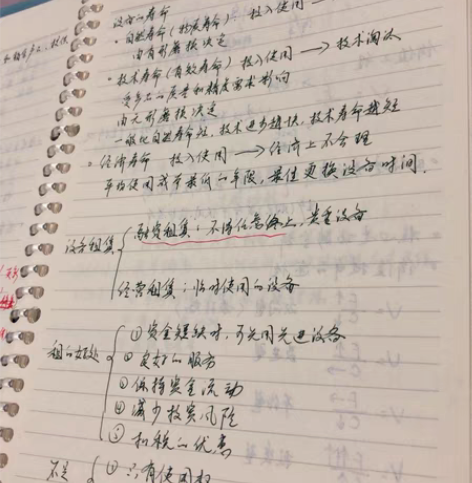 设备的寿命
·自然寿命(物质寿命):投入使用
由有形磨损决定
·技术寿命(有效寿命)投入使用→技术淘汰
受产品的质量和精度需求影响
由无形磨损决定
一般比自然寿命短,技术进步越快,技术寿命越短
·经济寿命 投入使用→经济上不合理
年均使用成本最低的年限,最佳更换设备时间.
设备租赁
融资租赁:不得任意终止,贵重设备
经营租赁:临时使用的设备
租的好处
①资金短缺时,可先用先进设备
②良好的服务
③保持资金流动
④减少投资风险
⑤扣税的优惠
不足
①只有使用权